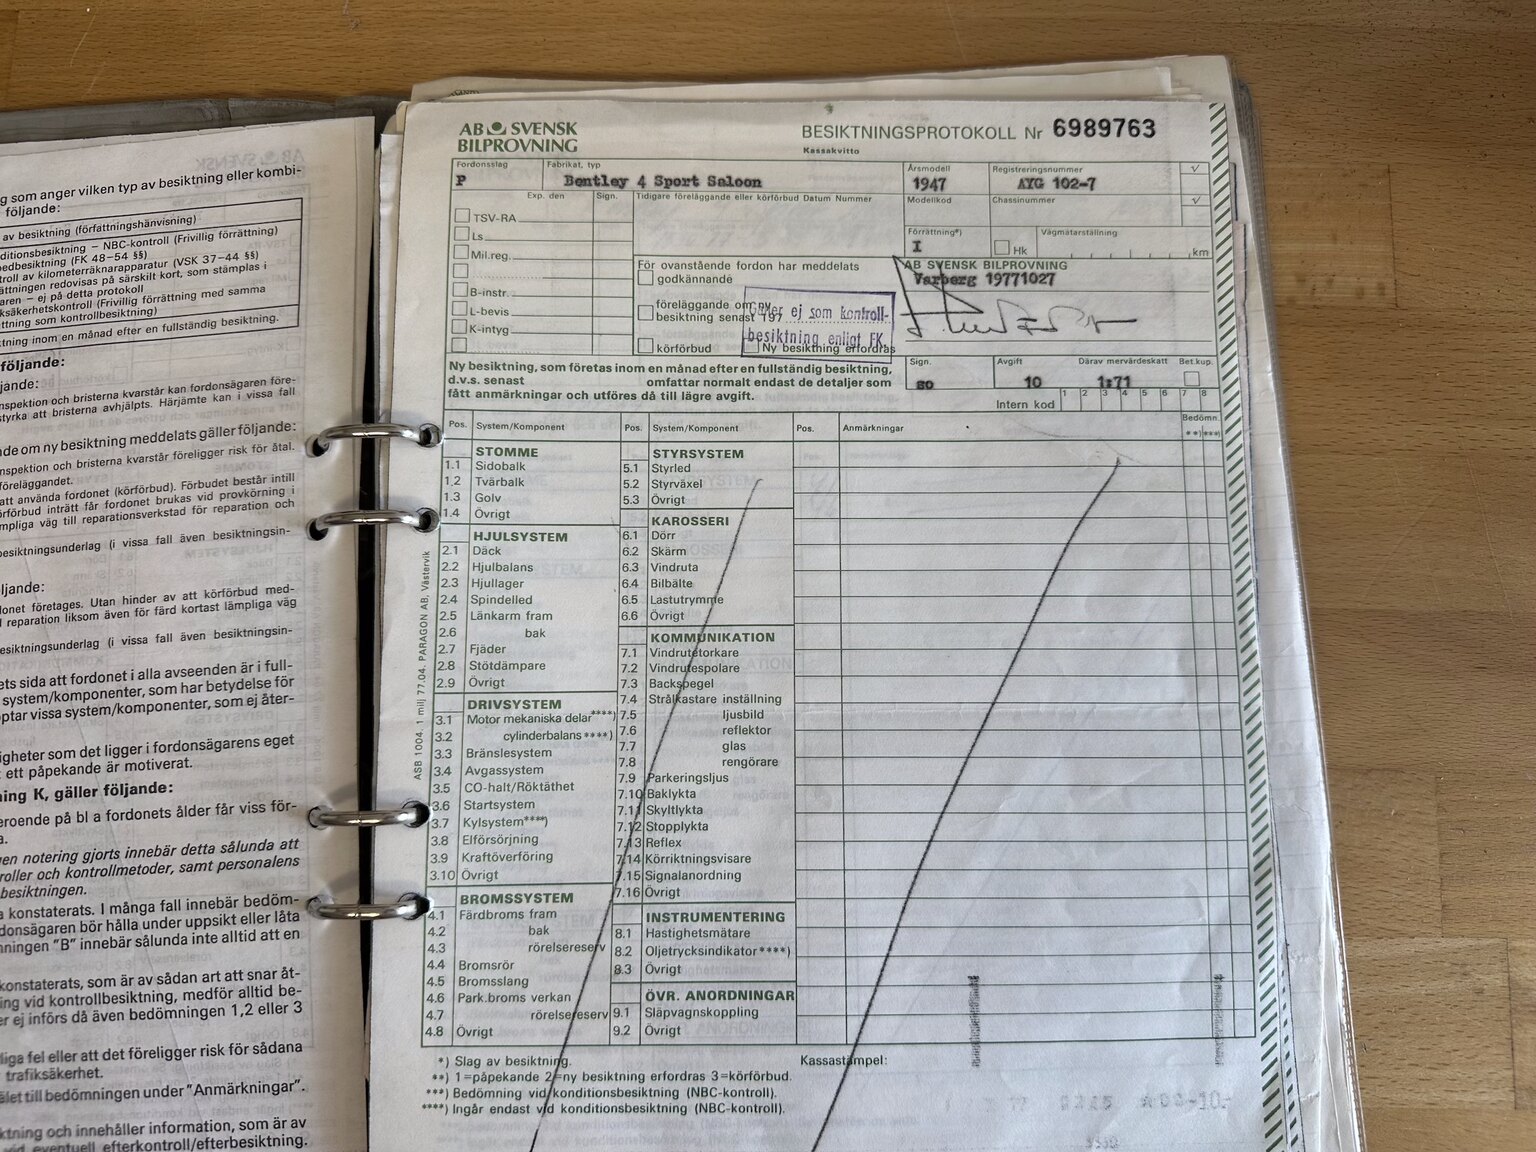 g som anger vilken typ av besiktning eller kombi-
följande:
av besiktning (författningshänvisning)
ditionsbesiktning – NBC-kontroll (Frivillig förrättning)
bedbesiktning (FK 48–54 §§)
troll av kilometerräknarapparatur (VSK 37–44 §§)
ättningen redovisas på särskilt kort, som stämplas i
aren – ej på detta protokoll
ksäkerhetskontroll (Frivillig förrättning med samma
attning som kontrollbesiktning)
ktning inom en månad efter en fullständig besiktning.
följande:
jande:
nspektion och bristerna kvarstår kan fordonsägaren före-
styrka att bristerna avhjälpts. Härjämte kan i vissa fall
nde om ny besiktning meddelats gäller följande:
nspektion och bristerna kvarstår föreligger risk för åtal.
föreläggandet.
att använda fordonet (körförbud). Förbudet består intill
örförbud inträtt får fordonet brukas vid provkörning i
mpliga väg till reparationsverkstad för reparation och
besiktningsunderlag (i vissa fall även besiktningsin-
ljande:
onet företages. Utan hinder av att körförbud med-
l reparation liksom även för färd kortast lämpliga väg
esiktningsunderlag (i vissa fall även besiktningsin-
ets sida att fordonet i alla avseenden är i full-
system/komponenter, som har betydelse för
ptar vissa system/komponenter, som ej åter-
igheter som det ligger i fordonsägarens eget
t ett påpekande är motiverat.
ning K, gäller följande:
eroende på bl a fordonets ålder får viss för-
a.
gen notering gjorts innebär detta sålunda att
roller och kontrollmetoder, samt personalens
besiktningen.
a konstaterats. I många fall innebär bedöm-
donsägaren bör hålla under uppsikt eller låta
nningen "B" innebär sålunda inte alltid att en
konstaterats, som är av sådan art att snar åt-
ing vid kontrollbesiktning, medför alltid be-
er ej införs då även bedömningen 1,2 eller 3
liga fel eller att det föreligger risk för sådana
trafiksäkerhet.
ålet till bedömningen under "Anmärkningar".
ktning och innehåller information, som är av
vid eventuell efterkontroll/efterbesiktning.
AB SVENSK
BILPROVNING
BESIKTNINGSPROTOKOLL Nr 6989763
Kassakvitto
Fordonsslag Fabrikat, typ Årsmodell Registreringsnummer
P Bentley 4 Sport Saloon 1947 AYG 102-7
Exp. den Sign. Tidigare föreläggande eller körförbud Datum Nummer Modellkod Chassinummer
TSV-RA
Ls Förrättning*) Vägmätarställning
Mil.reg. I Hk km
För ovanstående fordon har meddelats AB SVENSK BILPROVNING
godkännande Varberg 19771027
B-instr.
L-bevis föreläggande om ny
besiktning senast 197
Gäller ej som kontroll-
besiktning enligt FK
K-intyg
körförbud Ny besiktning erfordras
Ny besiktning, som företas inom en månad efter en fullständig besiktning,
d.v.s. senast omfattar normalt endast de detaljer som
fått anmärkningar och utföres då till lägre avgift.
Sign. Avgift Därav mervärdeskatt Bet.kup.
so 10 1:71
Intern kod 1 2 3 4 5 6 7 8
Pos. System/Komponent Pos. System/Komponent Pos. Anmärkningar Bedömn.
**) ***)
STOMME
1.1 Sidobalk
1.2 Tvärbalk
1.3 Golv
1.4 Övrigt
HJULSYSTEM
2.1 Däck
2.2 Hjulbalans
2.3 Hjullager
2.4 Spindelled
2.5 Länkarm fram
2.6 bak
2.7 Fjäder
2.8 Stötdämpare
2.9 Övrigt
DRIVSYSTEM
3.1 Motor mekaniska delar****)
3.2 cylinderbalans****)
3.3 Bränslesystem
3.4 Avgassystem
3.5 CO-halt/Röktäthet
3.6 Startsystem
3.7 Kylsystem****)
3.8 Elförsörjning
3.9 Kraftöverföring
3.10 Övrigt
BROMSSYSTEM
4.1 Färdbroms fram
4.2 bak
4.3 rörelsereserv
4.4 Bromsrör
4.5 Bromsslang
4.6 Park.broms verkan
4.7 rörelsereserv
4.8 Övrigt
STYRSYSTEM
5.1 Styrled
5.2 Styrväxel
5.3 Övrigt
KAROSSERI
6.1 Dörr
6.2 Skärm
6.3 Vindruta
6.4 Bilbälte
6.5 Lastutrymme
6.6 Övrigt
KOMMUNIKATION
7.1 Vindrutetorkare
7.2 Vindrutespolare
7.3 Backspegel
7.4 Strålkastare inställning
7.5 ljusbild
7.6 reflektor
7.7 glas
7.8 rengörare
7.9 Parkeringsljus
7.10 Baklykta
7.11 Skyltlykta
7.12 Stopplykta
7.13 Reflex
7.14 Körriktningsvisare
7.15 Signalanordning
7.16 Övrigt
INSTRUMENTERING
8.1 Hastighetsmätare
8.2 Oljetrycksindikator****)
8.3 Övrigt
ÖVR. ANORDNINGAR
9.1 Släpvagnskoppling
9.2 Övrigt
*) Slag av besiktning.
**) 1=påpekande 2=ny besiktning erfordras 3=körförbud.
***) Bedömning vid konditionsbesiktning (NBC-kontroll).
****) Ingår endast vid konditionsbesiktning (NBC-kontroll).
Kassastämpel:
ASB 1004. 1 milj 77.04. PARAGON AB, Västervik